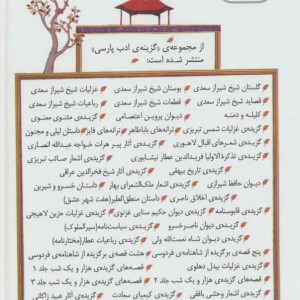 از مجموعه‌ی «گزینه‌ی ادب پارسی»
منتشر شده است:
گلستان شیخ شیراز سعدی بوستان شیخ شیراز سعدی غزلیات شیخ شیراز سعدی
قصاید شیخ شیراز سعدی قطعات شیخ شیراز سعدی رباعیات شیخ شیراز سعدی
کلیله و دمنه دیوان پروین اعتصامی گزیده‌ی مثنوی معنوی
گزیده‌ی غزلیات شمس تبریزی ترانه‌های باباطاهر ترانه‌های فایز داستان لیلی و مجنون
گزیده‌ی شعرهای اقبال لاهوری گزیده‌ی آثار پیر هرات خواجه عبدالله انصاری
گزیده‌ی تذکرة‌الاولیا فریدالدین عطار نیشابوری گزیده‌ی اشعار صائب تبریزی
گزیده‌ی تاریخ بیهقی گزیده‌ی آثار شیخ فخرالدین عراقی
دیوان حافظ شیرازی گزیده‌ی اشعار ملک‌الشعرای بهار داستان خسرو و شیرین
گزیده‌ی اخلاق ناصری داستان منطق‌الطیر (هفت شهر عشق)
گزیده‌ی قابوسنامه گزیده‌ی دیوان حکیم سنایی غزنوی گزیده‌ی غزلیات حزین لاهیجی
گزیده‌ی دیوان ناصرخسرو گزیده‌ی سیاست‌نامه (سیرالملوک)
گزیده‌ی دیوان شاه نعمت‌الله ولی گزیده‌ی رباعیات عطار (مختارنامه)
پنج قصه‌ی برگزیده از شاهنامه‌ی فردوسی هشت قصه‌ی برگزیده از شاهنامه‌ی فردوسی
گزیده‌ی غزلیات بیدل دهلوی قصه‌های گزیده‌ی هزار و یک شب جلد ۱
قصه‌های گزیده‌ی هزار و یک شب جلد ۲ قصه‌های گزیده‌ی هزار و یک شب جلد ۳
گزیده‌ی اشعار وحشی بافقی گزیده‌ی کیمیای سعادت گزیده‌ی آثار عبید زاکانی